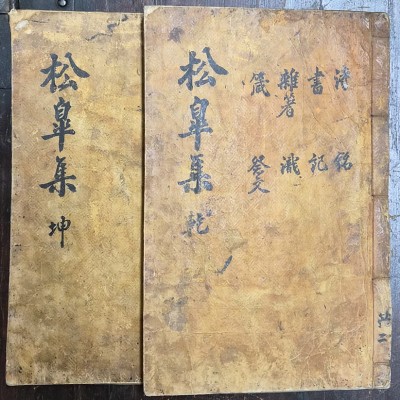 共二
詩 銘
書 記
雜著
箴 祭文
松皐集 乾
松皐集 坤